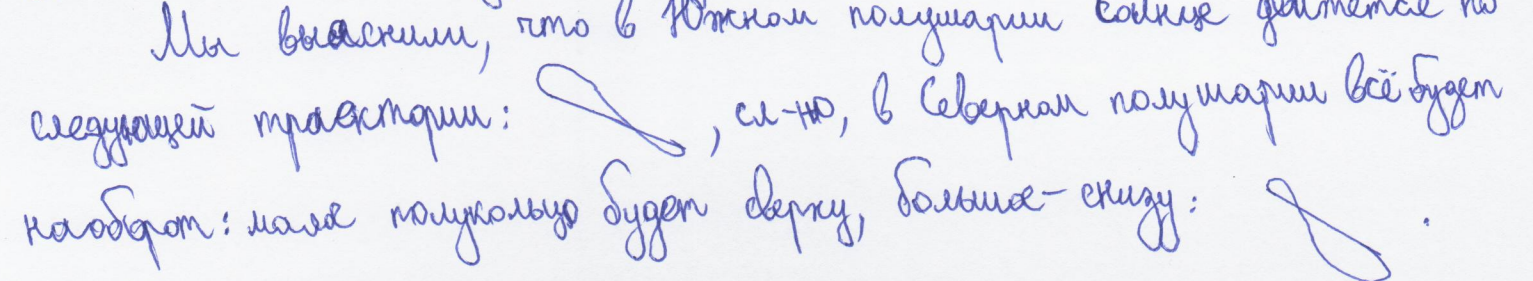 Мы выяснили, что в Южном полушарии солнце движется по
следующей траектории: , сл-но, в Северном полушарии всё будет
наоборот: малое полукольцо будет сверху, большое - снизу: .